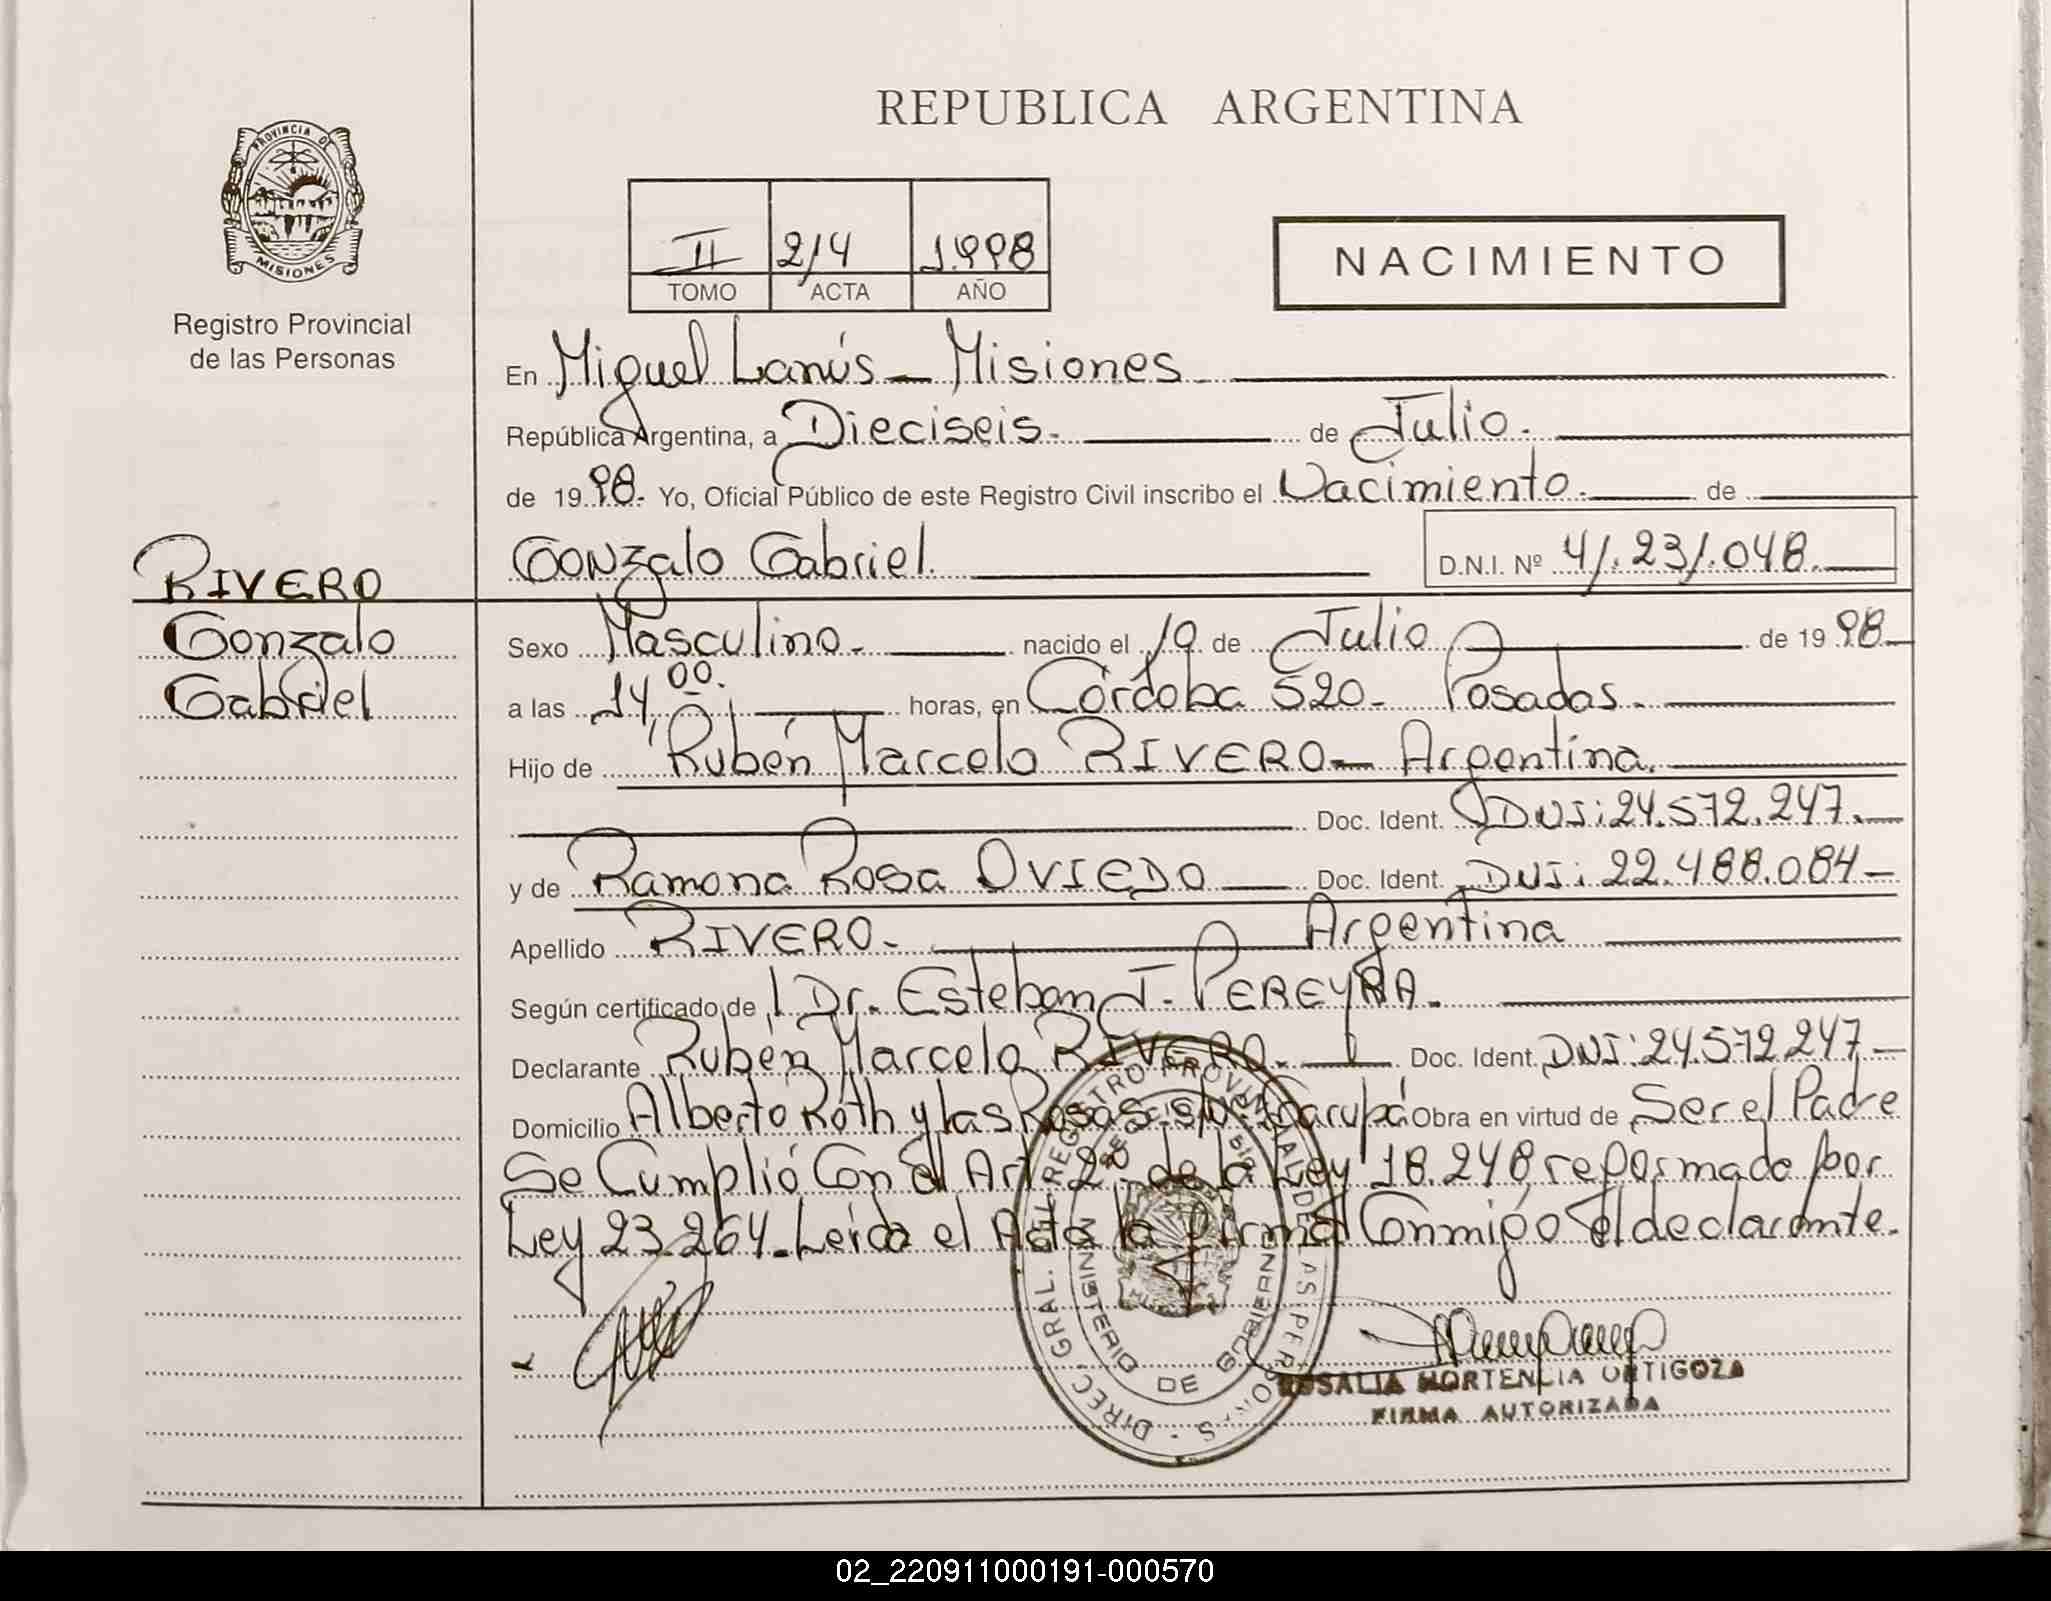 REPUBLICA ARGENTINA
PROVINCIA DE
MISIONES
Registro Provincial
de las Personas
II 214 1.998
TOMO ACTA AÑO
NACIMIENTO
En Miguel Lanús - Misiones
República Argentina, a Dieciseis. de Julio.
de 19 98. Yo, Oficial Público de este Registro Civil inscribo el Nacimiento. de
Gonzalo Gabriel. D.N.I. Nº 41.231.048.
RIVERO
Gonzalo
Gabriel
Sexo Masculino. nacido el 10 de Julio de 19 98
a las 14,00. horas, en Córdoba 520. Posadas.
Hijo de Rubén Marcelo RIVERO - Argentina.
Doc. Ident. DNI: 24.572.247.
y de Ramona Rosa OVIEDO Doc. Ident. DNI: 22.488.084
Apellido RIVERO. Argentina
Según certificado de Dr. Esteban J. PEREYRA.
Declarante Rubén Marcelo RIVERO. Doc. Ident. DNI: 24.572.247
Domicilio Alberto Roth y las Rosas s/n. Garupá Obra en virtud de Ser el Padre
Se Cumplió Con el Art. 2º de la Ley 18.248 reformado por
Ley 23.264. Leída el Acta la firma Conmigo el declarante.
DIREC. GRAL. DEL REGISTRO PROVINCIAL DE LAS PERSONAS
MINISTERIO DE GOBIERNO
ROSALIA HORTENCIA ORTIGOZA
FIRMA AUTORIZADA
02_220911000191-000570